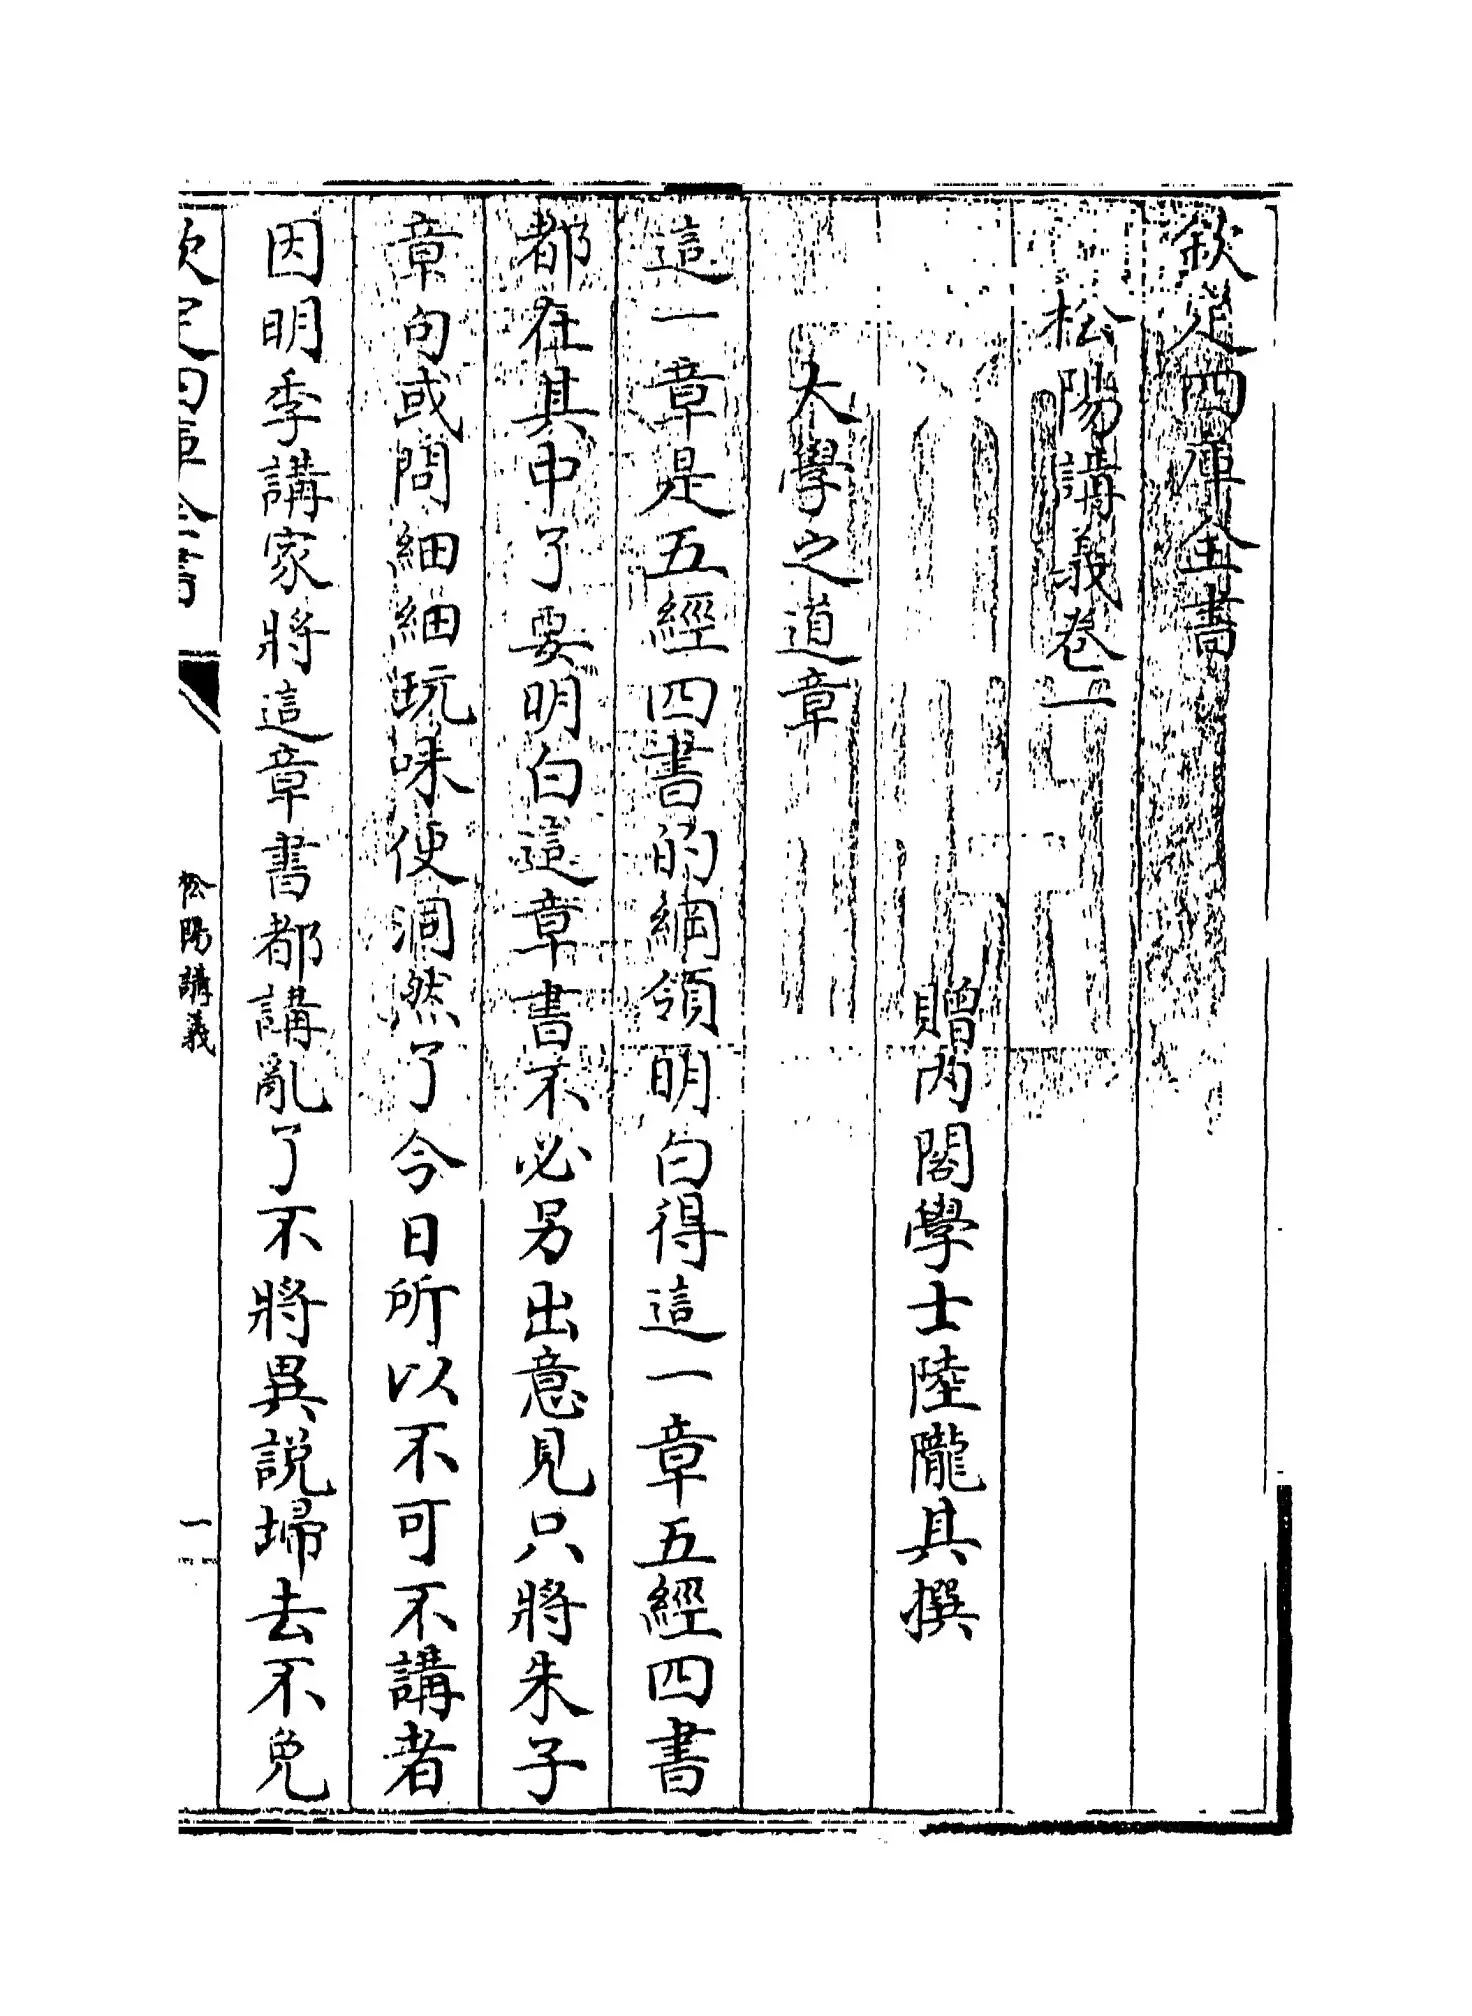 欽定四庫全書
松陽講義卷一
贈內閣學士陸隴其撰
大學之道章
這一章是五經四書的綱領明白得這一章五經四書
都在其中了要明白這章書不必另出意見只將朱子
章句或問細細玩味便洞然了今日所以不可不講者
因明季講家將這章書都講亂了不將異說埽去不免
欽定四庫全書
松陽講義
一